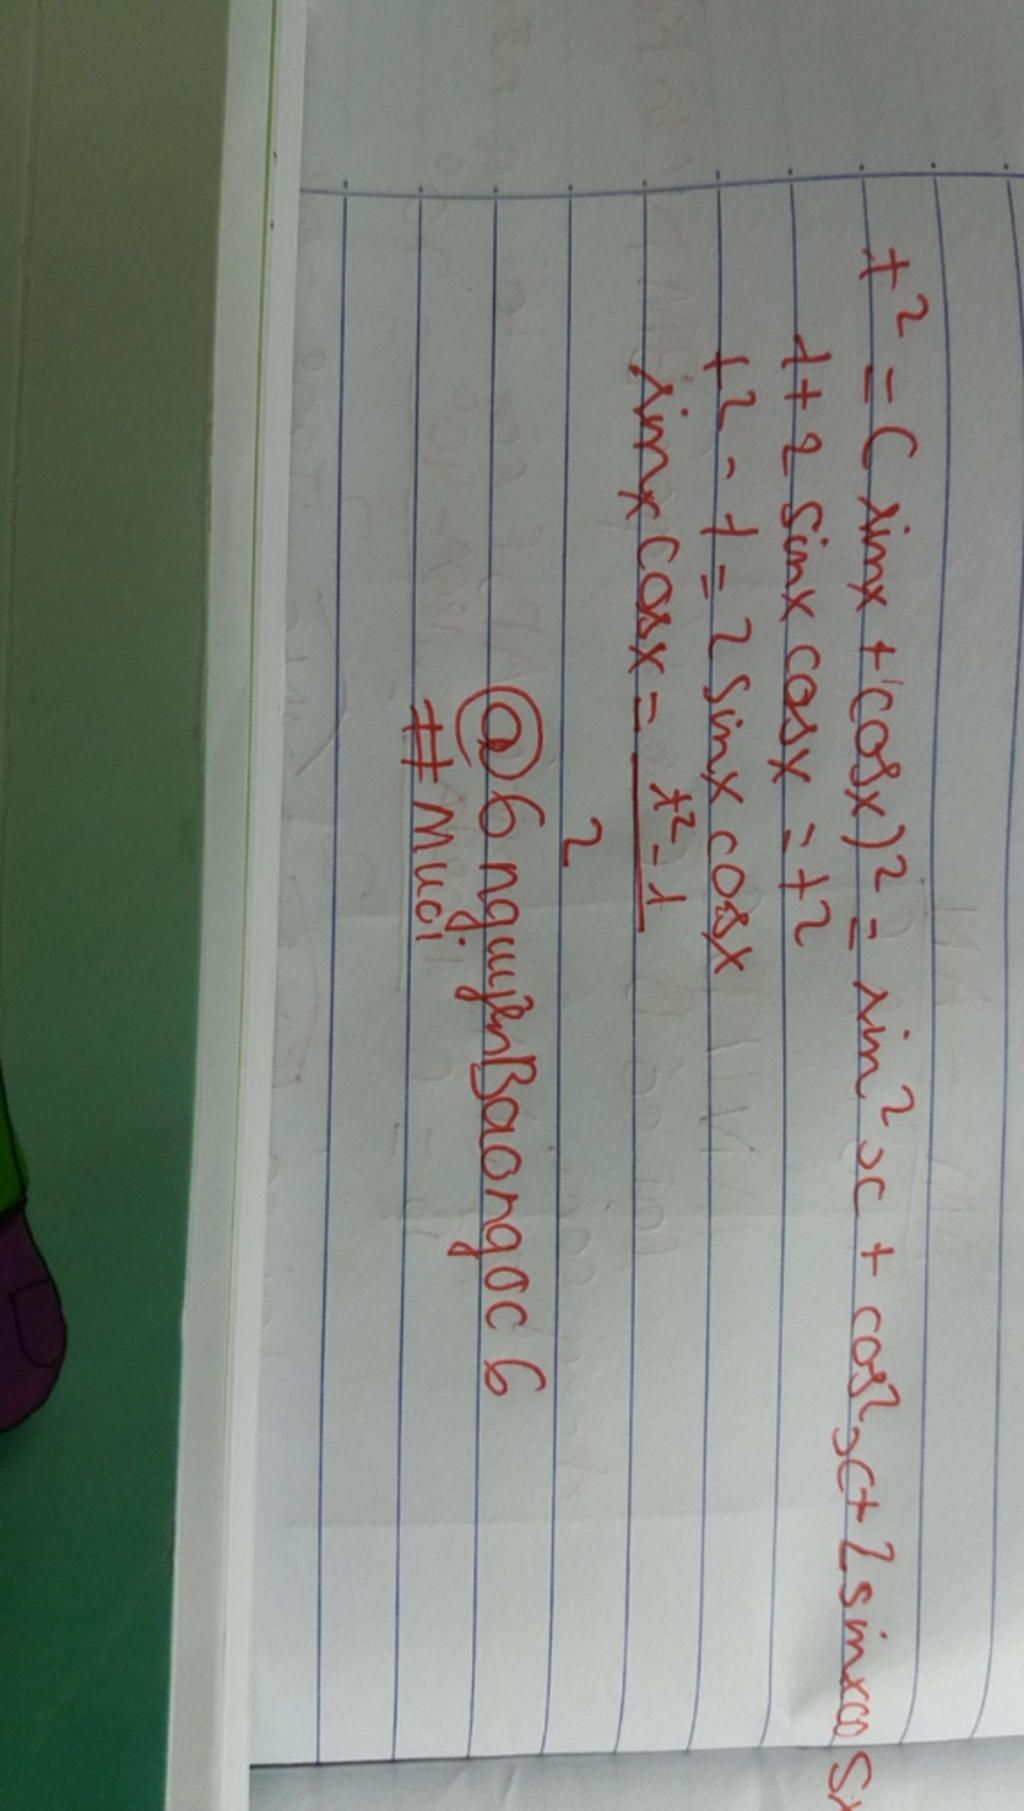 t² = (sinx + cosx)² = sin²x + cos²x + 2sinxcosx
1 + 2sinxcosx = t²
t² - 1 = 2sinxcosx
sinxcosx = t² - 1
2
@6nguyễnBaongoc6
#muoi